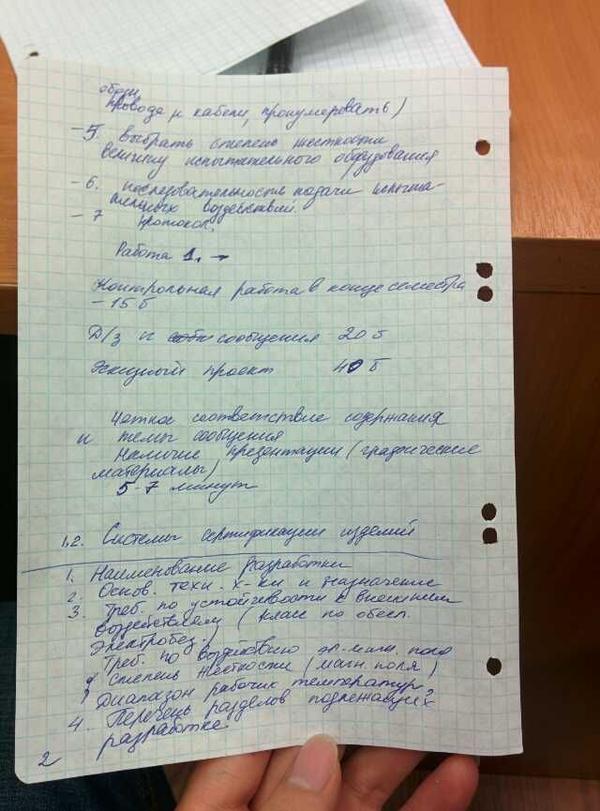 обозн.
провода и кабели, пронумеровать)
- 5. выбрать степень жесткости
величину испытательного оборудования
- 6. последовательность подачи испыта-
тельных воздействий.
- 7 протокол.
Работа 1. →
Контрольная работа в конце семестра
- 15 б
Д/з и сообщения 20 б
Эскизный проект 40 б
Четкое соответствие содержания
и темы сообщения
Наличие презентации (графические
материалы)
5-7 минут
1.2. Системы сертификации изделий
1. Наименование разработки
2. Основ. техн. х-ки и назначение
3. Треб. по устойчивости к внешним
воздействиям (класс по обесп.
электробез.)
Треб. по воздействию эл-магн. поля
степень жесткости (магн. поля)
Диапазон рабочих температур?
4. Перечень разделов подлежащих
разработке.
2